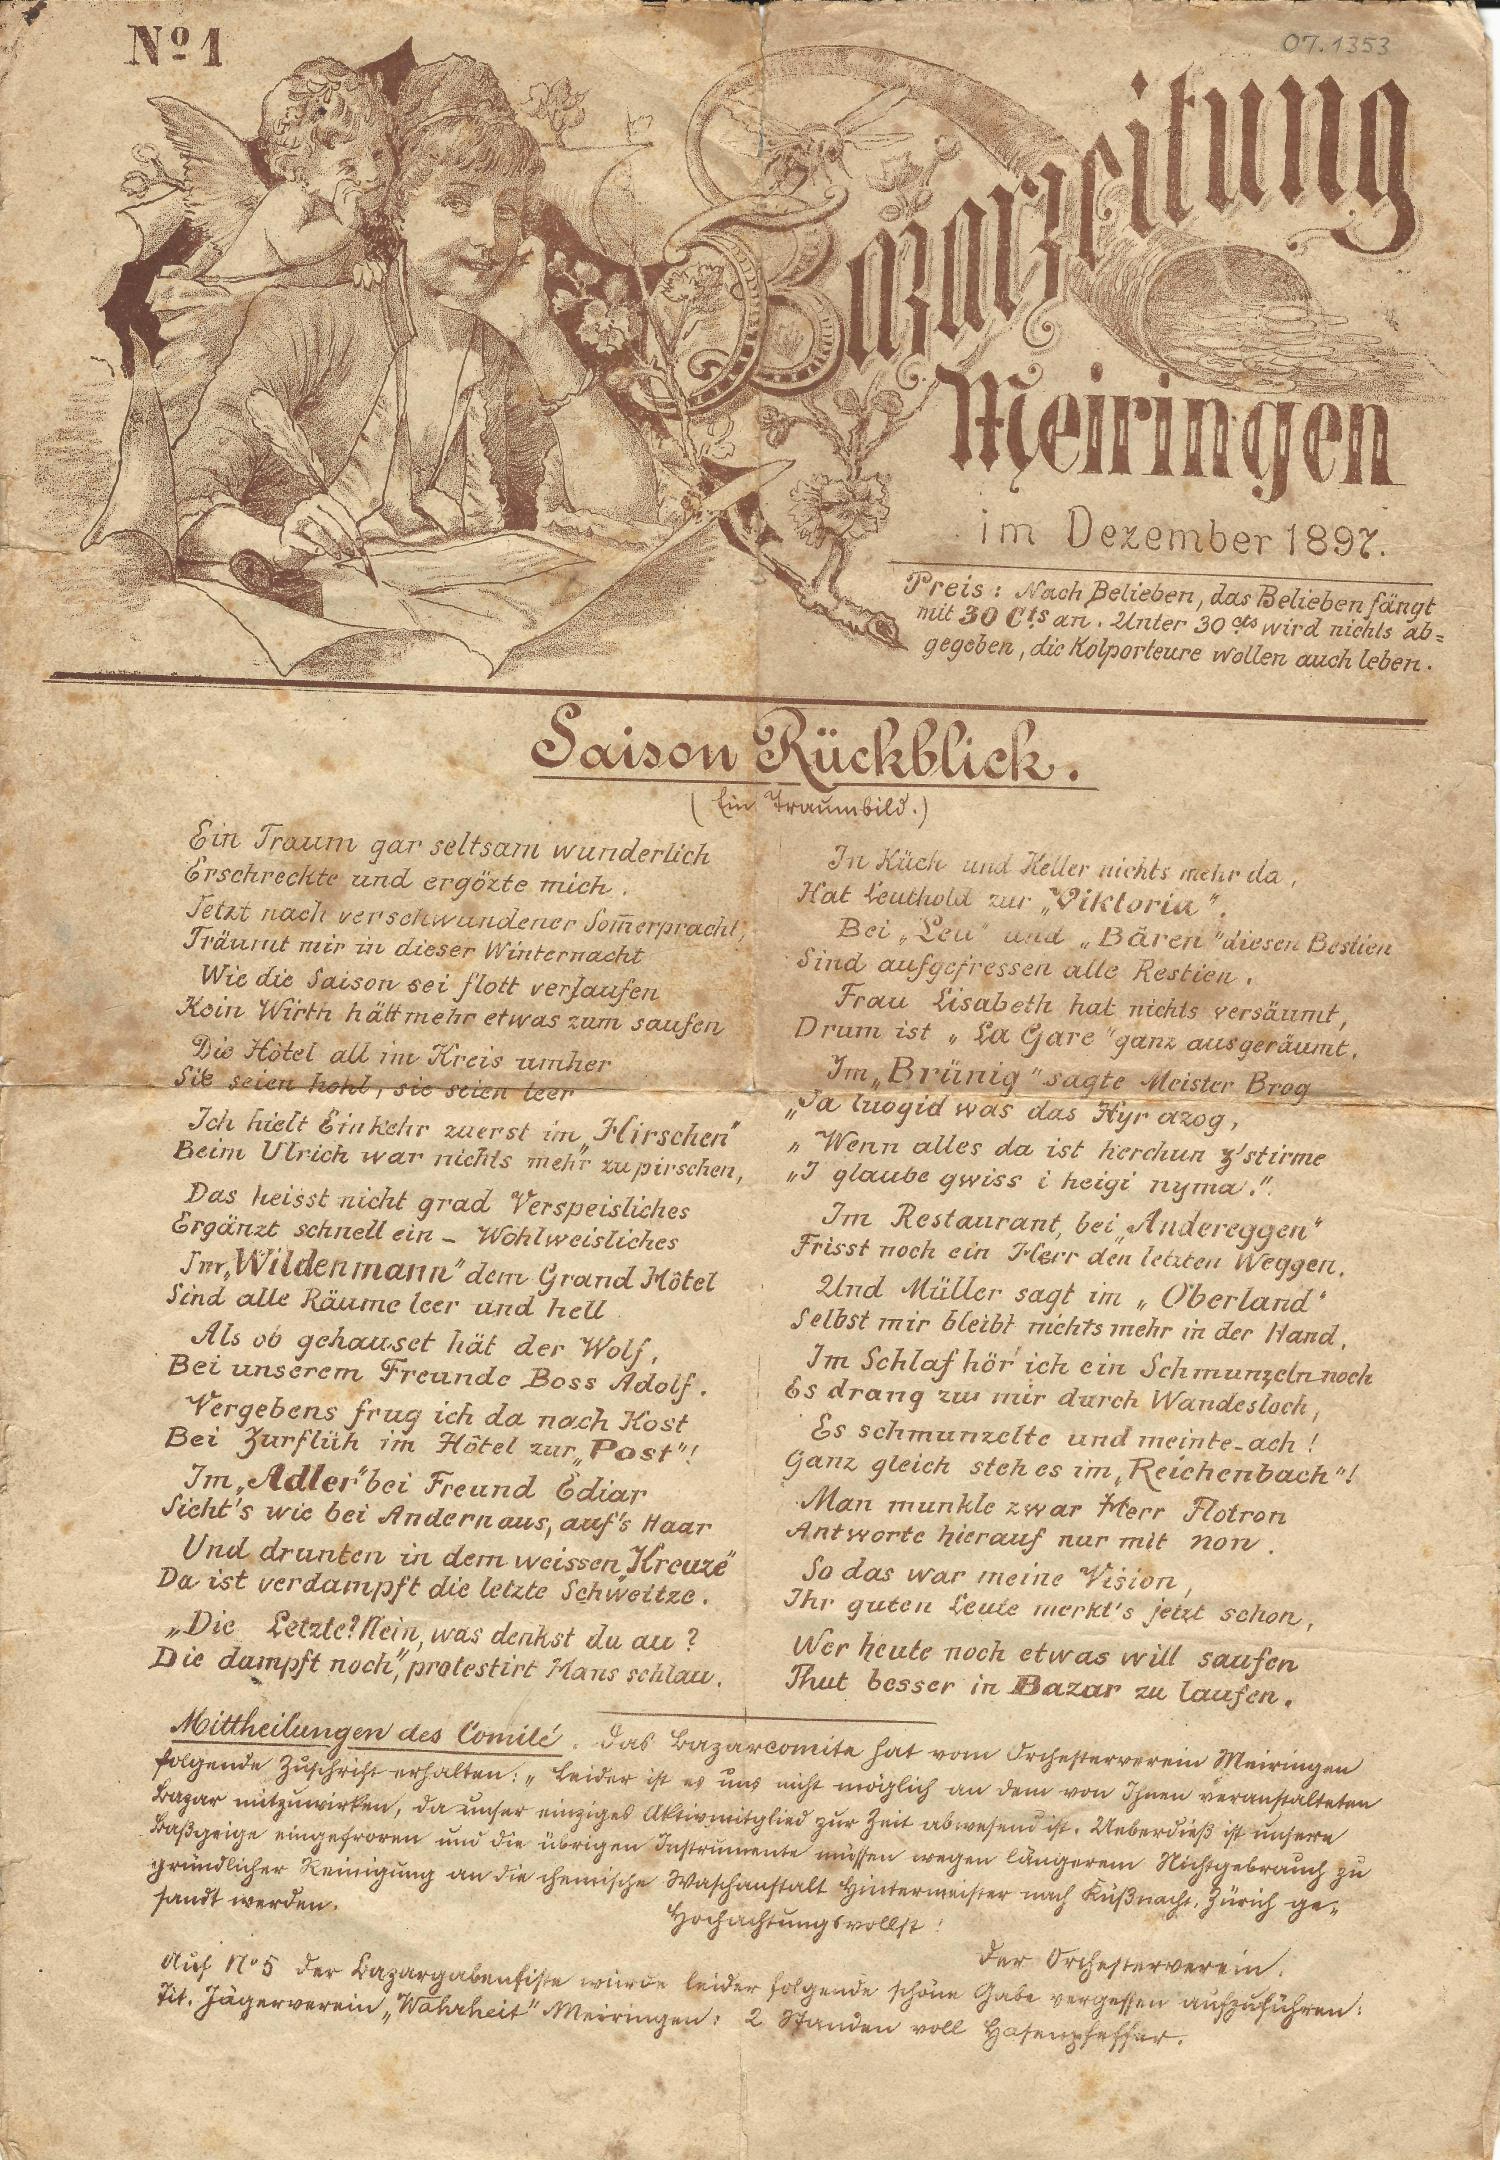 07.1353
No 1
Bazarzeitung
Meiringen
im Dezember 1897.
Preis: Nach Belieben, das Belieben fängt
mit 30 Cts an. Unter 30 cts wird nichts ab=
gegeben, die Kolporteure wollen auch leben.
Saison Rückblick.
(Ein Traumbild.)
Ein Traum gar seltsam wunderlich
Erschreckte und ergözte mich.
Jetzt nach verschwundener Som̅erpracht,
Träumt mir in dieser Winternacht
Wie die Saison sei flott verlaufen
Kein Wirth hätt mehr etwas zum saufen
Die Hôtel all im Kreis umher
Sie seien hohl, sie seien leer
Ich hielt Einkehr zuerst im „Hirschen"
Beim Ulrich war nichts mehr zu pirschen,
Das heisst nicht grad Verspeisliches
Ergänzt schnell ein – Wohlweisliches
Im „Wildenmann" dem Grand Hôtel
Sind alle Räume leer und hell
Als ob gehauset hät der Wolf,
Bei unserem Freunde Boss Adolf.
Vergebens frug ich da nach Kost
Bei Zurflüh im Hôtel zur „Post"!
Im „Adler" bei Freund Ediar
Sieht's wie bei Andern aus, auf's Haar
Und drunten in dem weissen „Kreuze"
Da ist verdampft die letzte Schweitze.
„Die Letzte? Nein, was denkst du au?
Die dampft noch", protestirt Hans schlau.
In Küch und Keller nichts mehr da,
Hat Leuthold zur „Viktoria".
Bei „Leu" und „Bären" diesen Bestien
Sind aufgefressen alle Restien.
Frau Lisabeth hat nichts versäumt,
Drum ist „La Gare" ganz ausgeräumt.
Im „Brünig" sagte Meister Brog
„Ja luogid was das Hyr azog,
„Wenn alles da ist herchun z'stirme
„I glaube gwiss i heigi nyma."
Im Restaurant, bei „Andereggen"
Frisst noch ein Herr den letzten Weggen.
Und Müller sagt im „Oberland"
Selbst mir bleibt nichts mehr in der Hand.
Im Schlaf hör' ich ein Schmunzeln noch
Es drang zu mir durch Wandesloch,
Es schmunzelte und meinte – ach!
Ganz gleich steh es im „Reichenbach"!
Man munkle zwar Herr Flotron
Antworte hierauf nur mit non.
So das war meine Vision,
Ihr guten Leute merkt's jetzt schon,
Wer heute noch etwas will saufen
Thut besser in Bazar zu laufen.
Mittheilungen des Comité. Das Bazarcomite hat vom Orchesterverein Meiringen
folgende Zuschrift erhalten: „Leider ist es uns nicht möglich an dem von Ihnen veranstalteten
Bazar mitzuwirken, da unser einziges Aktivmitglied zur Zeit abwesend ist. Ueberdieß ist unsere
Baßgeige eingefroren und die übrigen Instrumente müssen wegen längerem Nichtgebrauch zu
gründlicher Reinigung an die chemische Waschanstalt Hintermeister nach Küßnacht, Zürich ge=
sandt werden.
Hochachtungsvollst!
Der Orchesterverein.
Auf No 5 der Bazargabenliste wurde leider folgende schöne Gabe vergessen aufzuführen:
Tit. Jägerverein „Wahrheit" Meiringen: 2 Standen voll Hasenpfeffer.